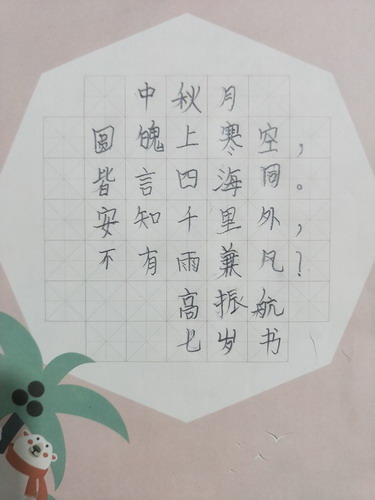 中秋月
圆魄上寒空，
皆言四海同。
安知千里外，
不有雨兼风？
高振航
七岁书